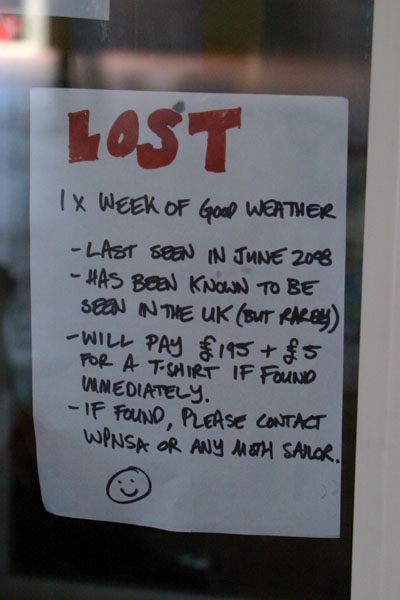 LOST
1 X WEEK OF GOOD WEATHER
- LAST SEEN IN JUNE 2008
- HAS BEEN KNOWN TO BE
SEEN IN THE UK (BUT RARELY)
- WILL PAY £195 + £5
FOR A T-SHIRT IF FOUND
IMMEDIATELY.
- IF FOUND, PLEASE CONTACT
WPNSA OR ANY MOTH SAILOR.